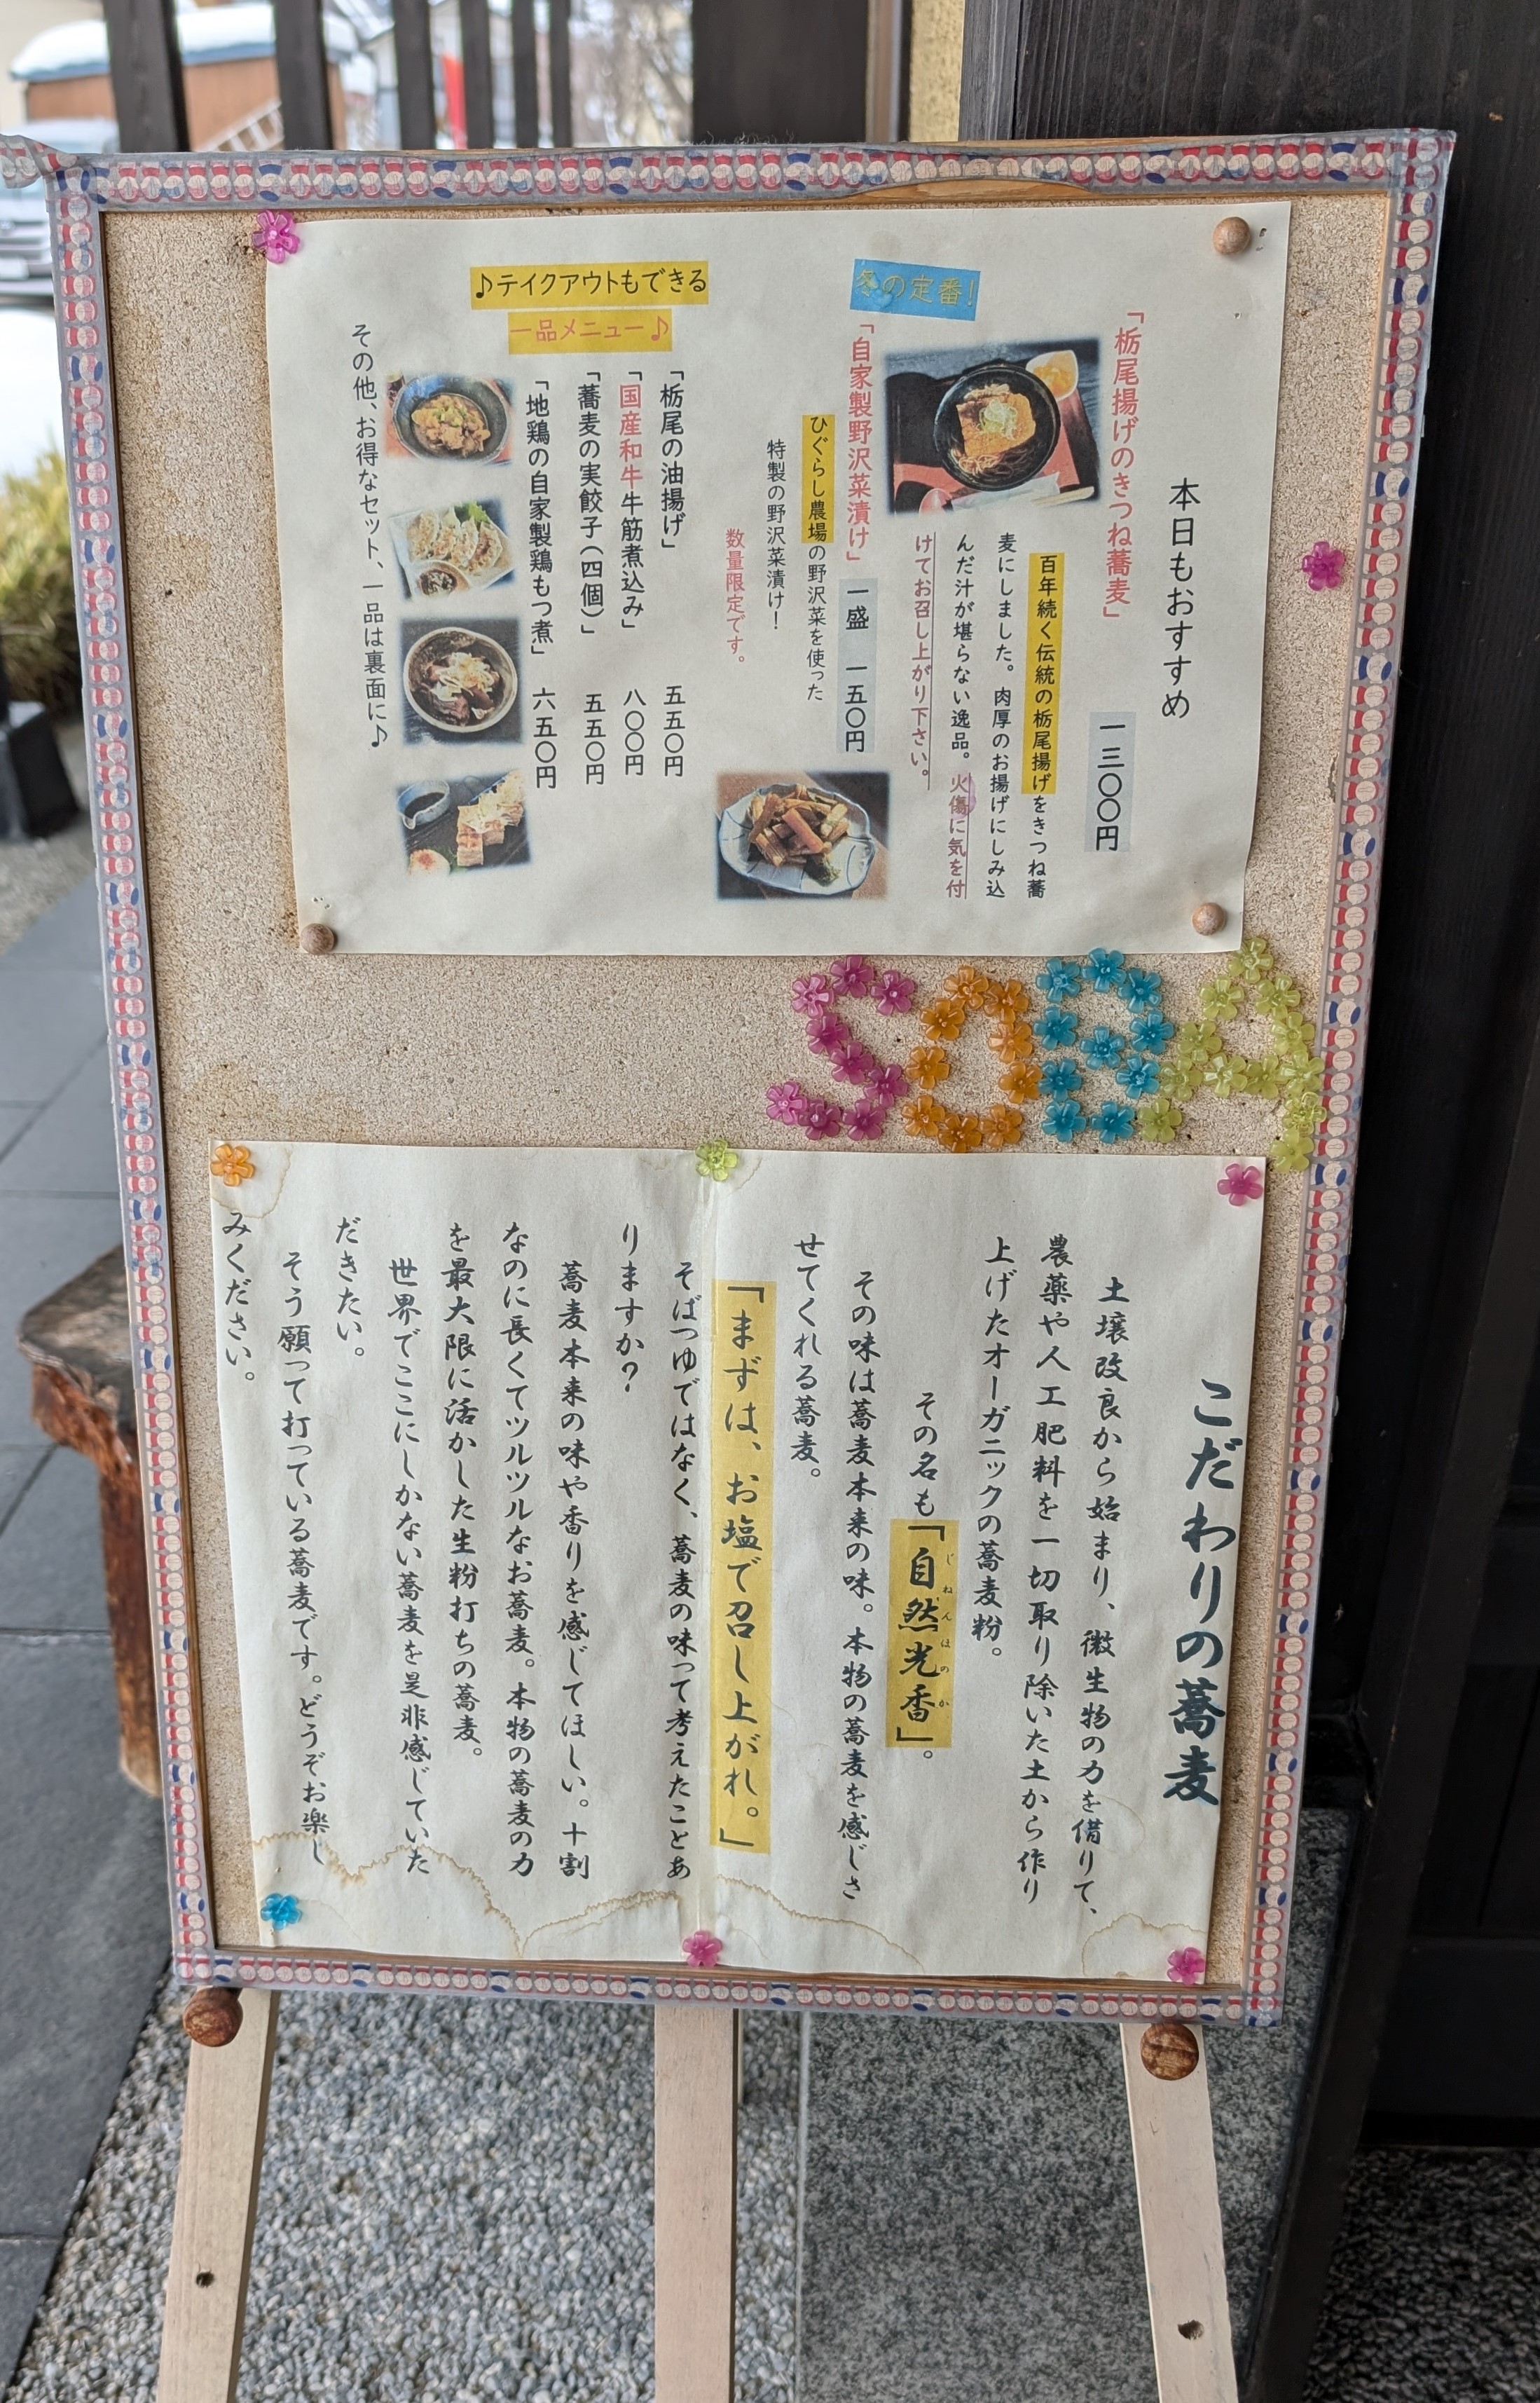 本日もおすすめ
「栃尾揚げのきつね蕎麦」
一三〇〇円
百年続く伝統の栃尾揚げをきつね蕎
麦にしました。肉厚のお揚げにしみ込
んだ汁が堪らない逸品。火傷に気を付
けてお召し上がり下さい。
冬の定番!
「自家製野沢菜漬け」 一盛 一五〇円
ひぐらし農場の野沢菜を使った
特製の野沢菜漬け!
数量限定です。
♪テイクアウトもできる
一品メニュー♪
「栃尾の油揚げ」 五五〇円
「国産和牛牛筋煮込み」 八〇〇円
「蕎麦の実餃子(四個)」 五五〇円
「地鶏の自家製鶏もつ煮」 六五〇円
その他、お得なセット、一品は裏面に♪
SOBA
こだわりの蕎麦
土壌改良から始まり、微生物の力を借りて、
農薬や人工肥料を一切取り除いた土から作り
上げたオーガニックの蕎麦粉。
その名も「自然光香」。
じねんほのか
その味は蕎麦本来の味。本物の蕎麦を感じさ
せてくれる蕎麦。
「まずは、お塩で召し上がれ。」
そばつゆではなく、蕎麦の味って考えたことあ
りますか?
蕎麦本来の味や香りを感じてほしい。十割
なのに長くてツルツルなお蕎麦。本物の蕎麦の力
を最大限に活かした生粉打ちの蕎麦。
世界でここにしかない蕎麦を是非感じていた
だきたい。
そう願って打っている蕎麦です。どうぞお楽し
みください。